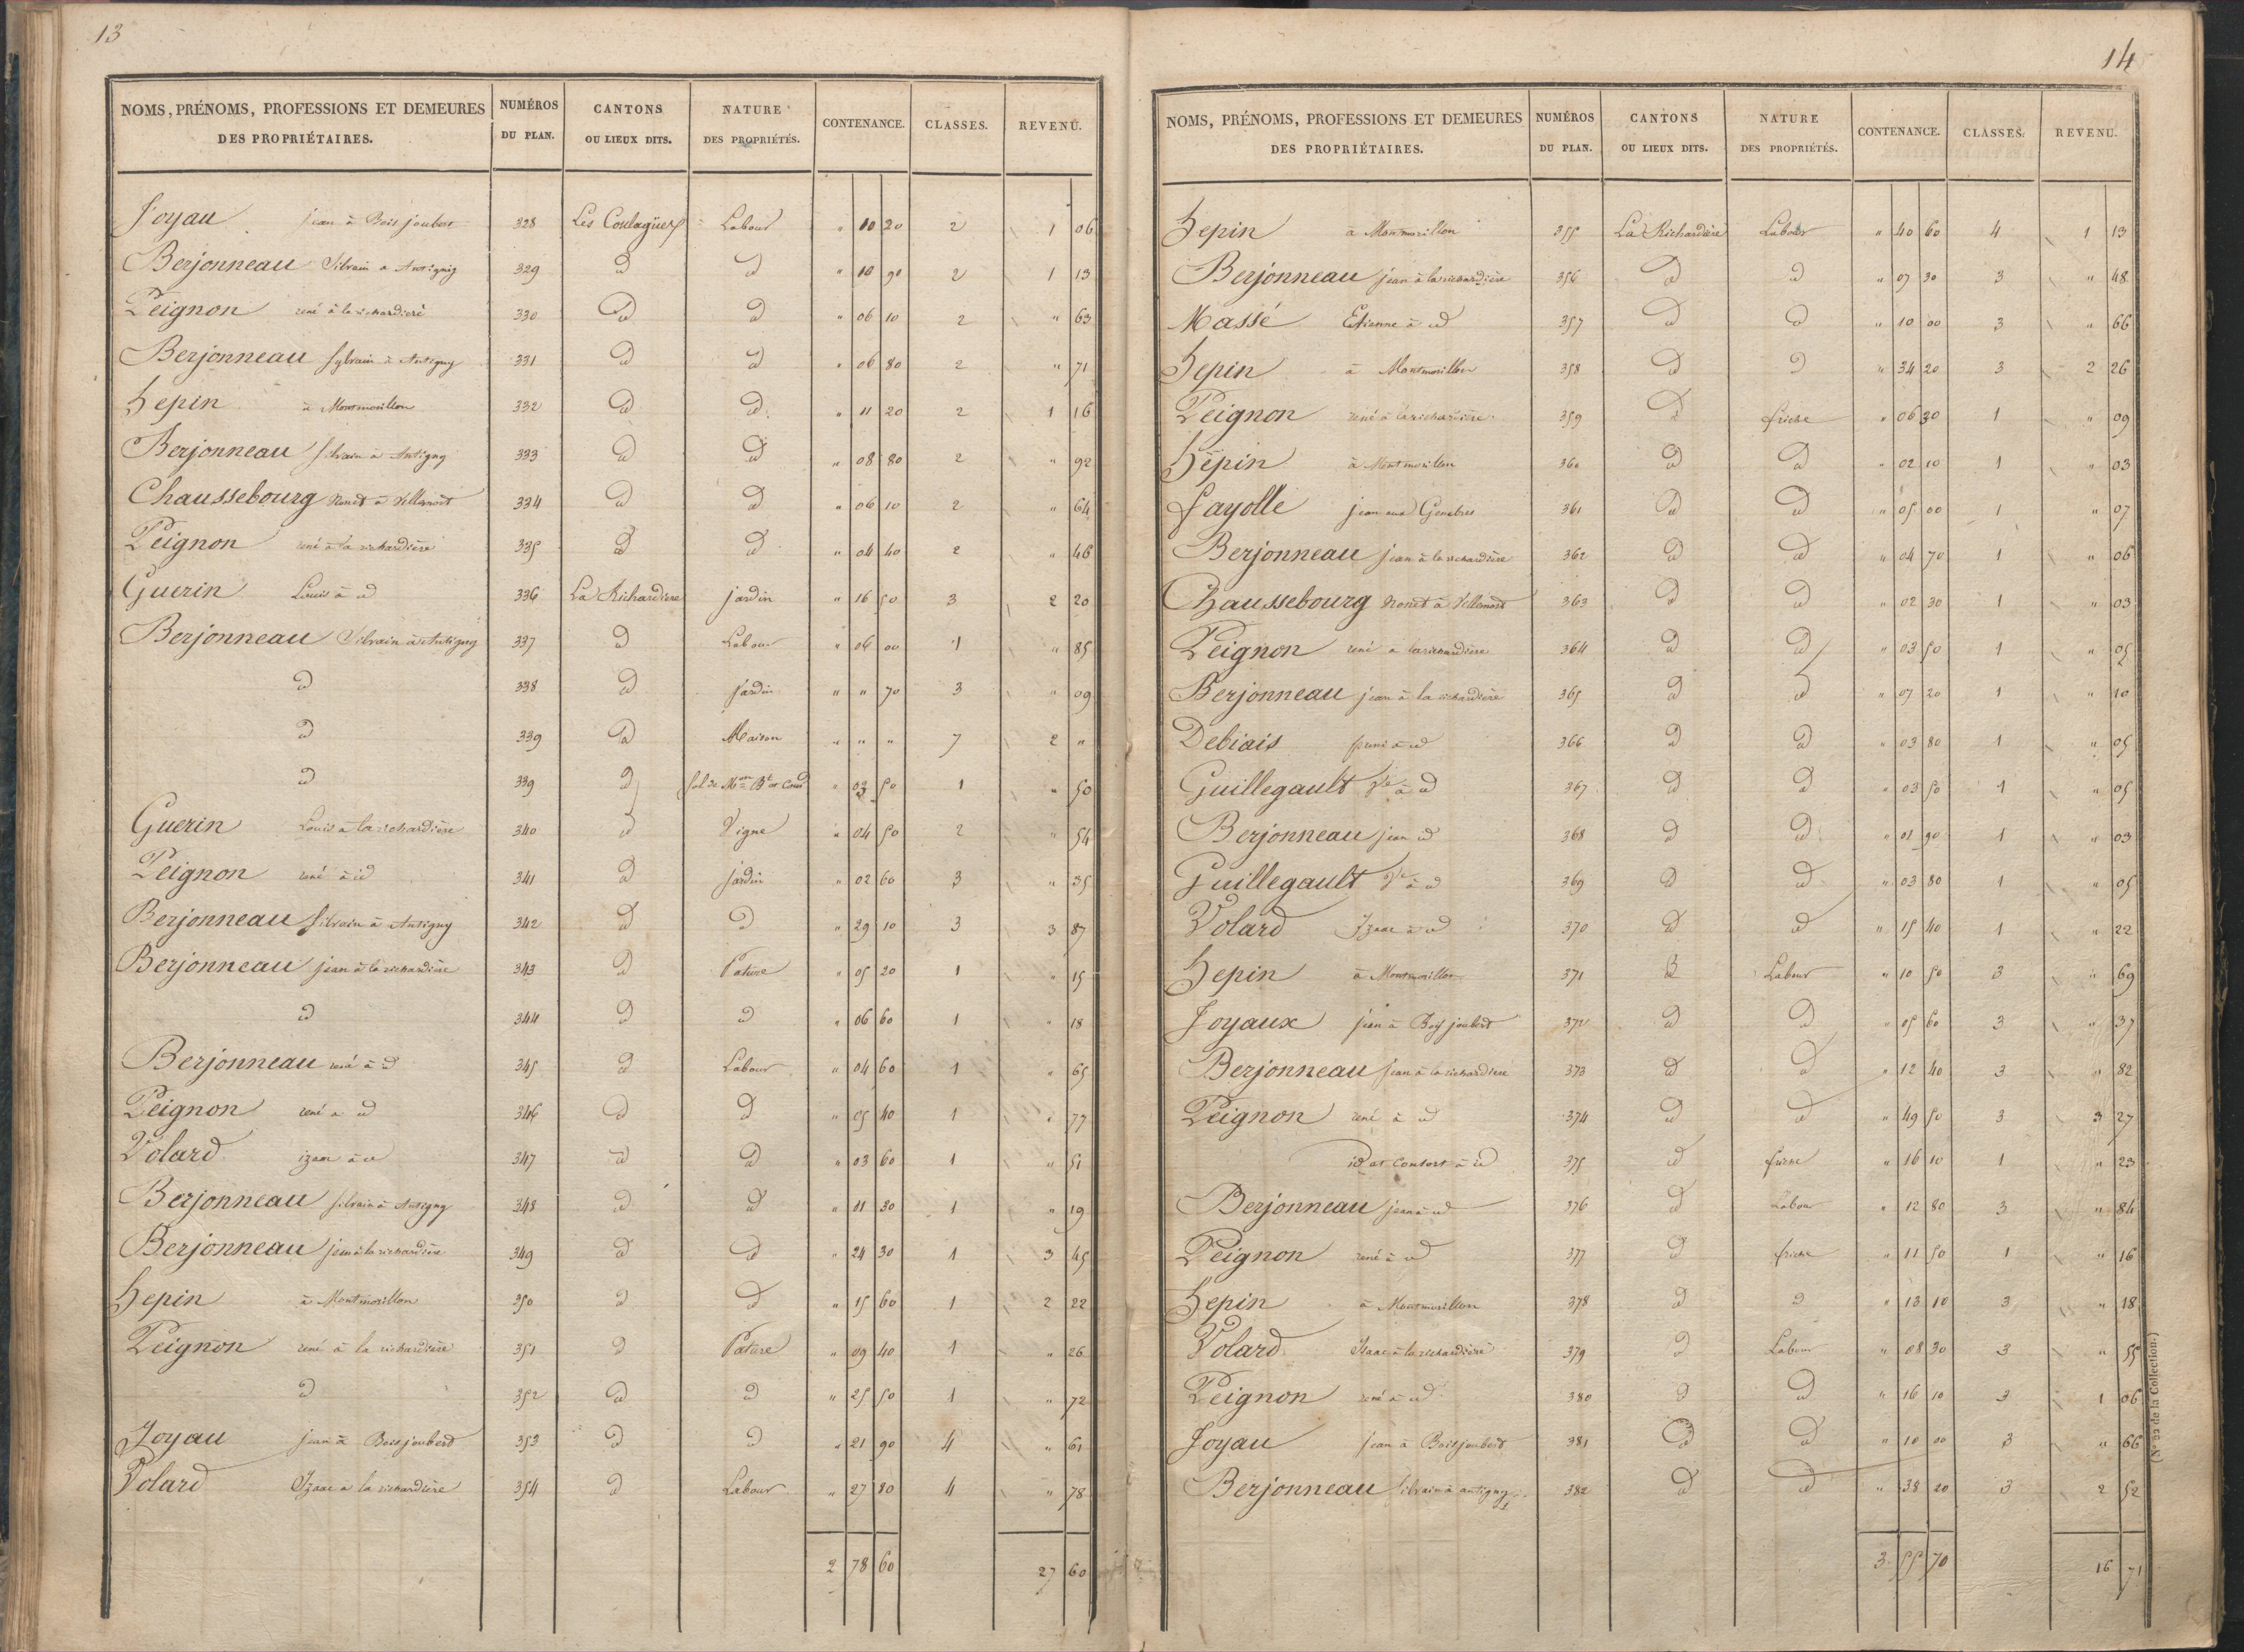 13
NOMS, PRÉNOMS, PROFESSIONS ET DEMEURES DES PROPRIÉTAIRES. NUMÉROS DU PLAN. CANTONS OU LIEUX DITS. NATURE DES PROPRIÉTÉS. CONTENANCE. CLASSES. REVENU.
Joyau jean à Bois joubert 328 Les Coulagües Labour " 10 20 2 1 06
Berjonneau Silvain a Antigny 329 id id " 10 90 2 1 13
Peignon rené à la richardiere 330 id id " 06 10 2 " 63
Berjonneau Sylvain à Antigny 331 id id " 06 80 2 " 71
hepin à Montmorillon 332 id id " 11 20 2 1 16
Berjonneau silvain à Antigny 333 id id " 08 80 2 " 92
Chaussebourg à Villemort 334 id id " 06 10 2 " 64
Peignon rené à la richardière 335 id id " 04 40 2 " 46
Guerin Louis à id 336 La Richardiere jardin " 16 50 3 2 20
Berjonneau Silvain à Antigny 337 id Labour " 06 00 1 " 85
id 338 id jardin " " 70 3 " 09
id 339 id Maison " " " 7 2 "
id 339 id sol de Mon Bt et Cour " 03 50 1 " 50
Guerin Louis à la richardière 340 id Vigne " 04 50 2 " 54
Peignon rené à id 341 id jardin " 02 60 3 " 35
Berjonneau silvain à Antigny 342 id id " 29 10 3 3 87
Berjonneau jean à la richardière 343 id Pature " 05 20 1 " 15
id 344 id id " 06 60 1 " 18
Berjonneau rené à id 345 id Labour " 04 60 1 " 65
Peignon rené a id 346 id id " 05 40 1 " 77
Volard izaac à id 347 id id " 03 60 1 " 51
Berjonneau silvain à Antigny 348 id id " 01 30 1 " 19
Berjonneau jean à la richardière 349 id id " 24 30 1 3 45
hepin à Montmorillon 350 id id " 15 60 1 2 22
Peignon rené à la richardière 351 id Pature " 09 40 1 " 26
id 352 id id " 25 50 1 " 72
Joyau jean à Boisjouberd 353 id id " 21 90 4 " 61
Volard Izaac a la richardière 354 id Labour " 27 80 4 " 78
2 78 60 27 60
14
NOMS, PRÉNOMS, PROFESSIONS ET DEMEURES DES PROPRIÉTAIRES. NUMÉROS DU PLAN. CANTONS OU LIEUX DITS. NATURE DES PROPRIÉTÉS. CONTENANCE. CLASSES. REVENU.
hepin à Montmorillon 355 La Richardiere Labour " 40 60 4 1 13
Berjonneau jean à la richardière 356 id id " 07 30 3 " 48
Massé Etienne à id 357 id id " 10 00 3 " 66
hepin à Montmorillon 358 id id " 34 20 3 2 26
Peignon rené à la richardière 359 id friche " 06 30 1 " 09
hepin à Montmorillon 360 id id " 02 10 1 " 03
fayolle jean aux Genebres 361 id id " 05 00 1 " 07
Berjonneau jean à la richardière 362 id id " 04 70 1 " 06
Chaussebourg à Villemort 363 id id " 02 30 1 " 03
Peignon rené a la richardière 364 id id " 03 50 1 " 05
Berjonneau jean à la richardière 365 id id " 07 20 1 " 10
Debiais à id 366 id id " 03 80 1 " 05
Guillegault Ve à id 367 id id " 03 50 1 " 05
Berjonneau jean id 368 id id " 01 90 1 " 03
Guillegault Ve à id 369 id id " 03 80 1 " 05
Volard Izaac à id 370 id id " 15 40 1 " 22
hepin à Montmorillon 371 id Labour " 10 50 3 " 69
Joyaux jean à Bois joubert 372 id id " 05 60 3 " 37
Berjonneau jean à la richardiere 373 id id " 12 40 3 " 82
Peignon rené à id 374 id id " 49 50 3 3 27
id et Consort à id 375 id friche " 16 10 1 " 23
Berjonneau jean à id 376 id Labour " 12 80 3 " 84
Peignon rené à id 377 id friche " 11 50 1 " 16
hepin à Montmorillon 378 id id " 13 10 3 " 18
Volard Isaac à la richardière 379 id Labour " 08 30 3 " 55
Peignon rené à id 380 id id " 16 10 3 1 06
Joyau jean à Boisjouberd 381 id id " 10 00 3 " 66
Berjonneau silvain à antigny 382 id id " 38 20 3 2 52
3 55 70 16 71
(N° 22 de la Collection.)